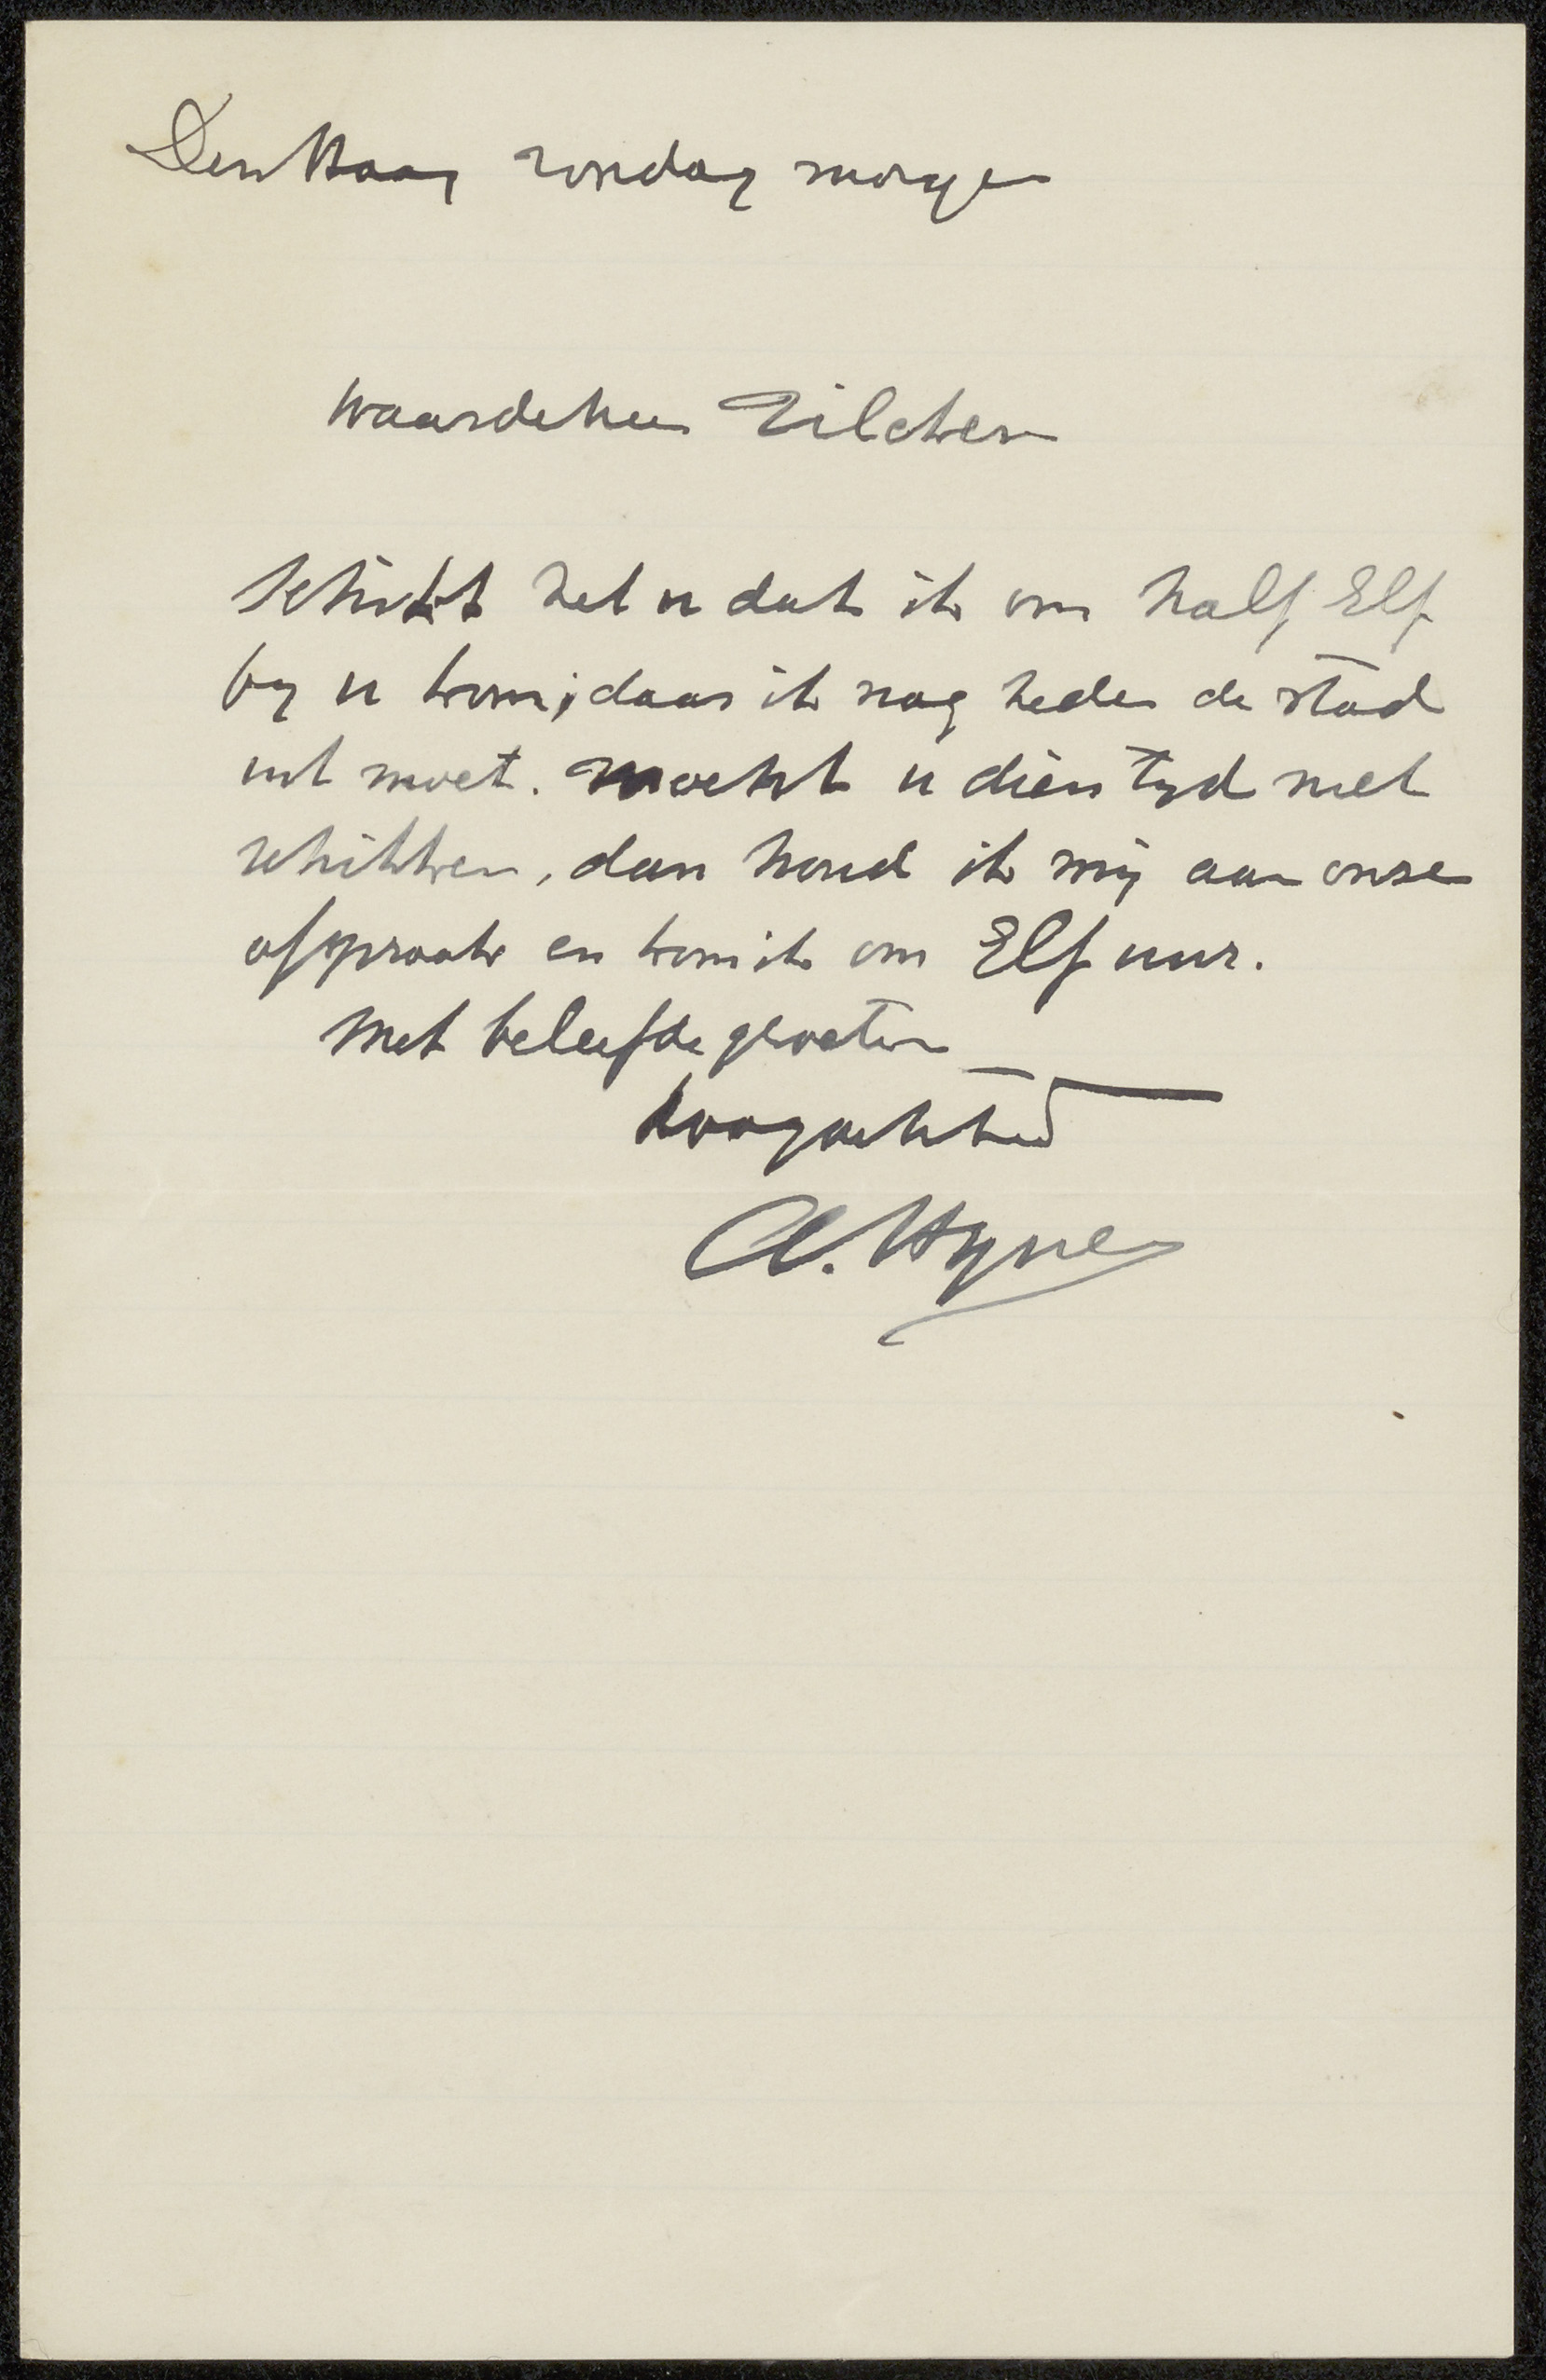 Den Haag zondag morgen
Waarde heer Zilcken
Schikt het u dat ik om half Elf
by u kom, daar ik nog heden de stad
uit moet. Mocht u dien tyd niet
schikken, dan houd ik mij aan onze
afspraak en kom ik om Elf uur.
Met beleefde groeten
hoogachtend
A. Hyner